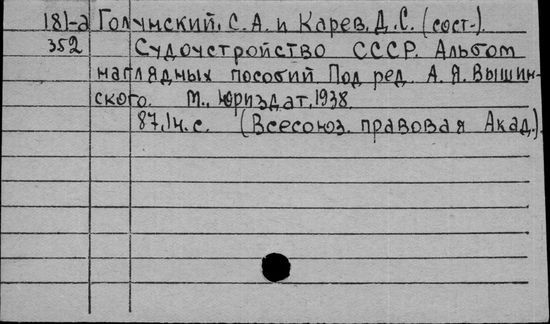 181-а Голунский, С.А. и Карев, Д.С. (сост.).
352 Судоустройство СССР. Альбом
наглядных пособий. Под ред. А.Я. Вышин-
ского. М., Юриздат, 1938.
87, 1н.с. (Всесоюз. правовая Акад.).